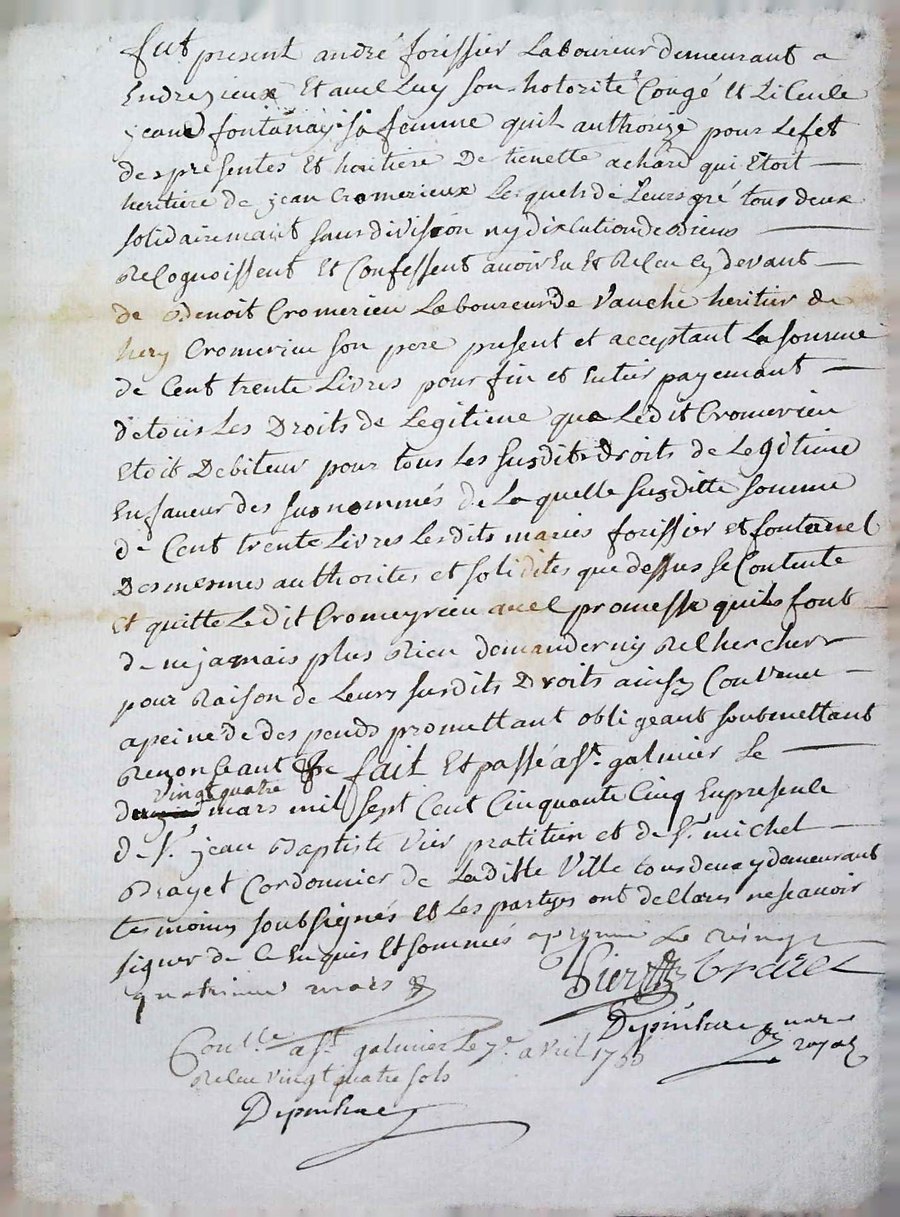 fut present andré forissier Laboureur demeurant a
Endrezieux Et avec Luy son hotorité Congé et Licence
jeane fontanay sa femme quil authorize pour Lefet
des presentes Et heritiere De tienette achard qui Etoit
heritiere de jean Cromerieux Lesquels de Leurs gré tous deux
solidairemant sans division ny dixcution de Biens
Recognoissent Et Confessent avoir Eu Et Receu cy devant
de Benoit Cromerieu Laboureur de Vauche heritier de
hery Cromerieu son pere present et acceptant La somme
de Cent trente Livres pour fin et Entier payemant
de tous Les Droits de Legitime que Ledit Cromerieu
Etoit Debiteur pour tous Les susdits droits de Legitime
En faveur des susnommés de Laquelle susditte somme
de Cent trente Livres Lesdits maries forissier et fontanel
Des mesmes authorites et solidites que dessus se Contente
Et quitte Ledit Cromeyrieu avec promesse quils font
de ne jamais plus Rien demander ny Rechercher
pour Raison de Leurs susdits Droits ainsy Convenu
a peine de des pends promettant obligeant soubmettant
Renonceant &c fait Et passé a St. galmier Le
vingt quatre
mars mil sept Cent Cinquante Cinq En presence
de Sr. jean Baptiste Vier pratitien et de Sr. michel
Brayet Cordonnier de Laditte Ville tous deux y demeurant
tesmoins soubsignés et Les partyes ont declaré ne scavoir
signer de Ce Enquis Et sommés Le vingt
quatrieme mars
Vier Brazet
Depinhac
royal
Conlle a St. galmier Le 7e. avril 1755
Receu vingt quatre sols
Depinhac